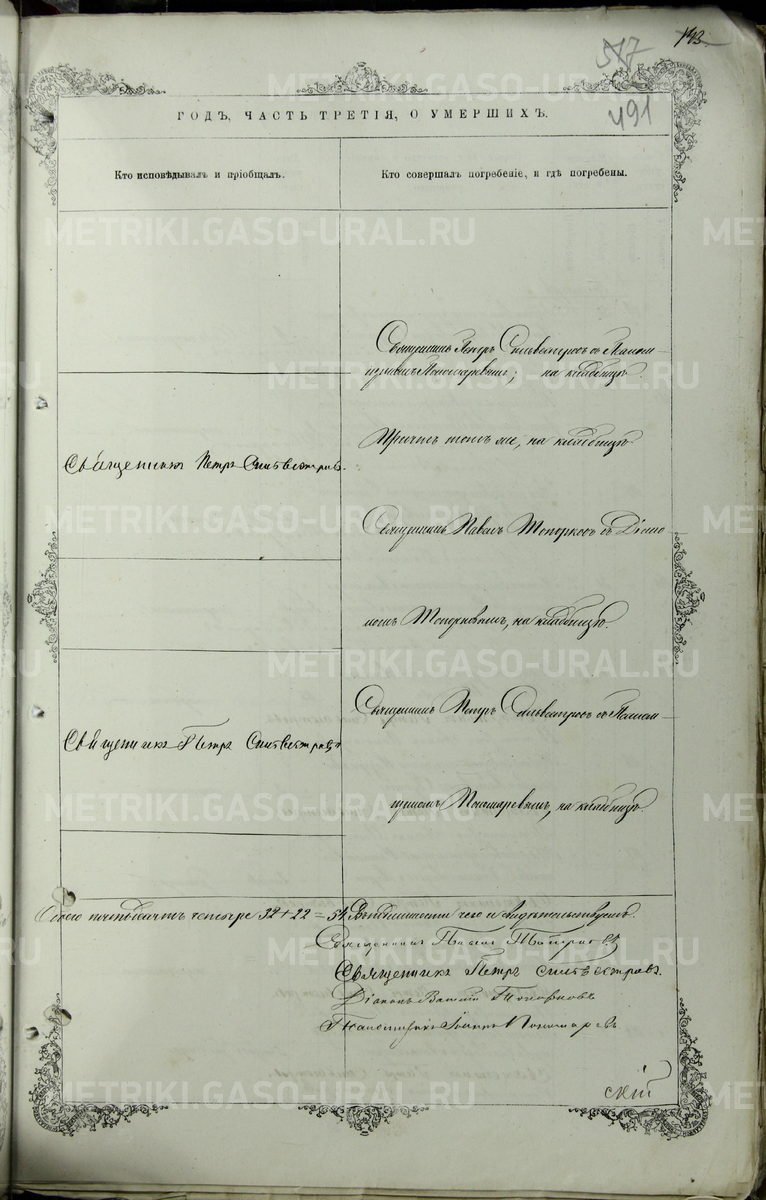 143
517
491
ГОДЪ, ЧАСТЬ ТРЕТІЯ, О УМЕРШИХЪ.
Кто исповѣдывалъ и пріобщалъ.
Кто совершалъ погребеніе, и гдѣ погребены.
Священникъ Петръ Сильвестровъ съ Псалом-
щикомъ Пономаревымъ; на кладбищѣ.
Священникъ Петръ Сильвестровъ.
Причтъ тотъ же, на кладбищѣ.
Священникъ Павелъ Топорковъ съ Діако-
номъ Топорковымъ, на кладбищѣ.
Священникъ Петръ Сильвестровъ
Священникъ Петръ Сильвестровъ съ Псалом-
щикомъ Пономаревымъ, на кладбищѣ.
пятьдесятъ четыре 32+22=54. чего и свидѣтельствуемъ.
Священникъ Павелъ Топорковъ
Священникъ Петръ Сильвестровъ.
Діаконъ Топорковъ
Псаломщикъ Іоаннъ Пономаревъ
скій
METRIKI.GASO-URAL.RU